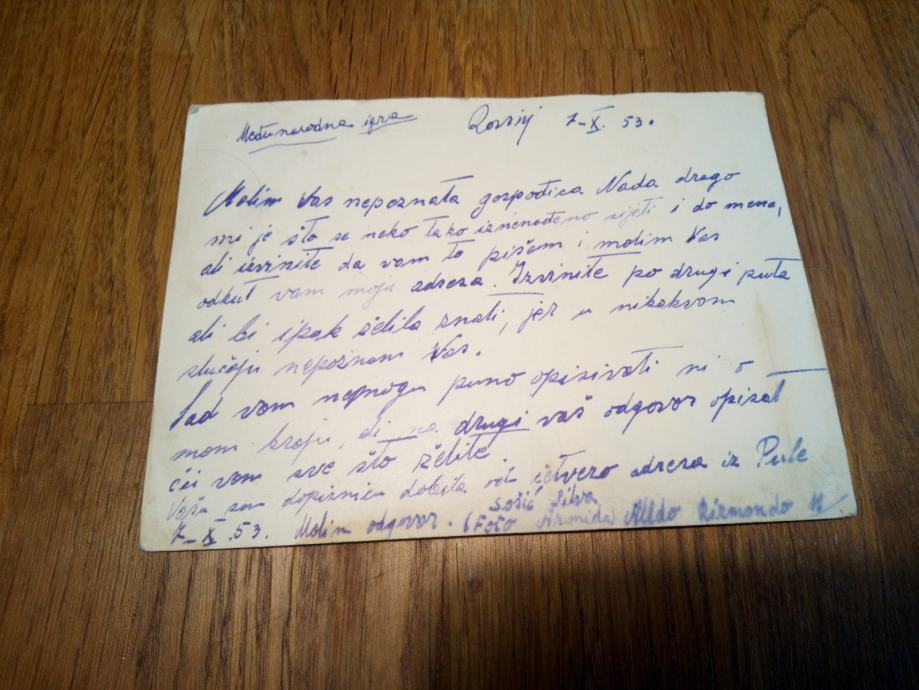 Međunarodna igra Rovinj 7-X. 53.
Molim Vas nepoznata gospođica Nada drago
mi je što se neko tako iznenađeno sijeti i do mene,
ali izvinite da vam to pišem i molim Vas
odkut vam moja adresa. Izvinite po drugi puta
ali bi ipak želila znati, jer u nikakvom
slučaju nepoznam Vas.
Sad vam nemogu puno opisivati ni o
mom kraju, ali na drugi vaš odgovor opisat
ću vam sve što želite.
Vašu sam dopisnicu dobila od četvero adresa iz Pule
7-X.53. Molim odgovor. Sošić Silva
(Fošo Armida Aldo Rismondo